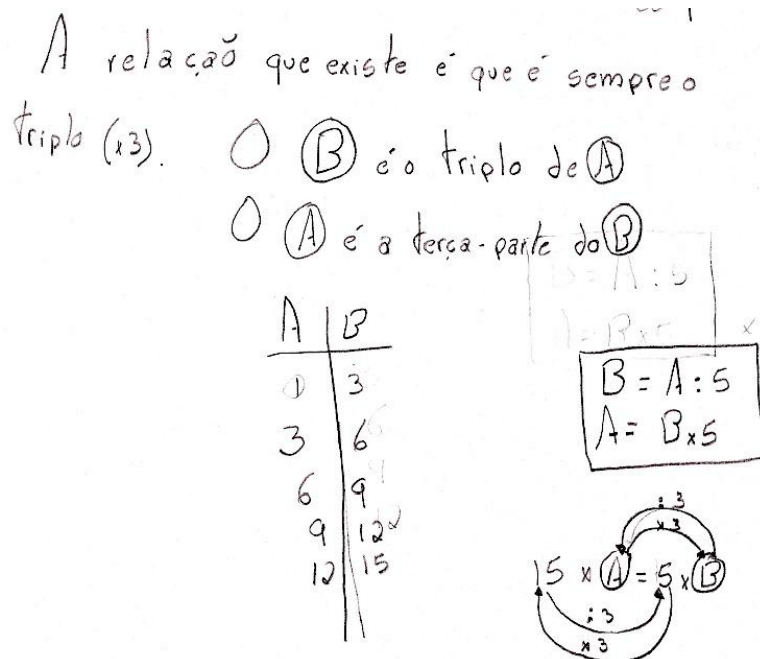 A relação que existe é que é sempre o
triplo (x3). O B é o triplo de A
O A é a terça-parte do B
A | B
1 3
3 6
6 9
9 12
12 15
B = A : 5
A = B x 5
: 3
x 3
15 x A = 5 x B
: 3
x 3